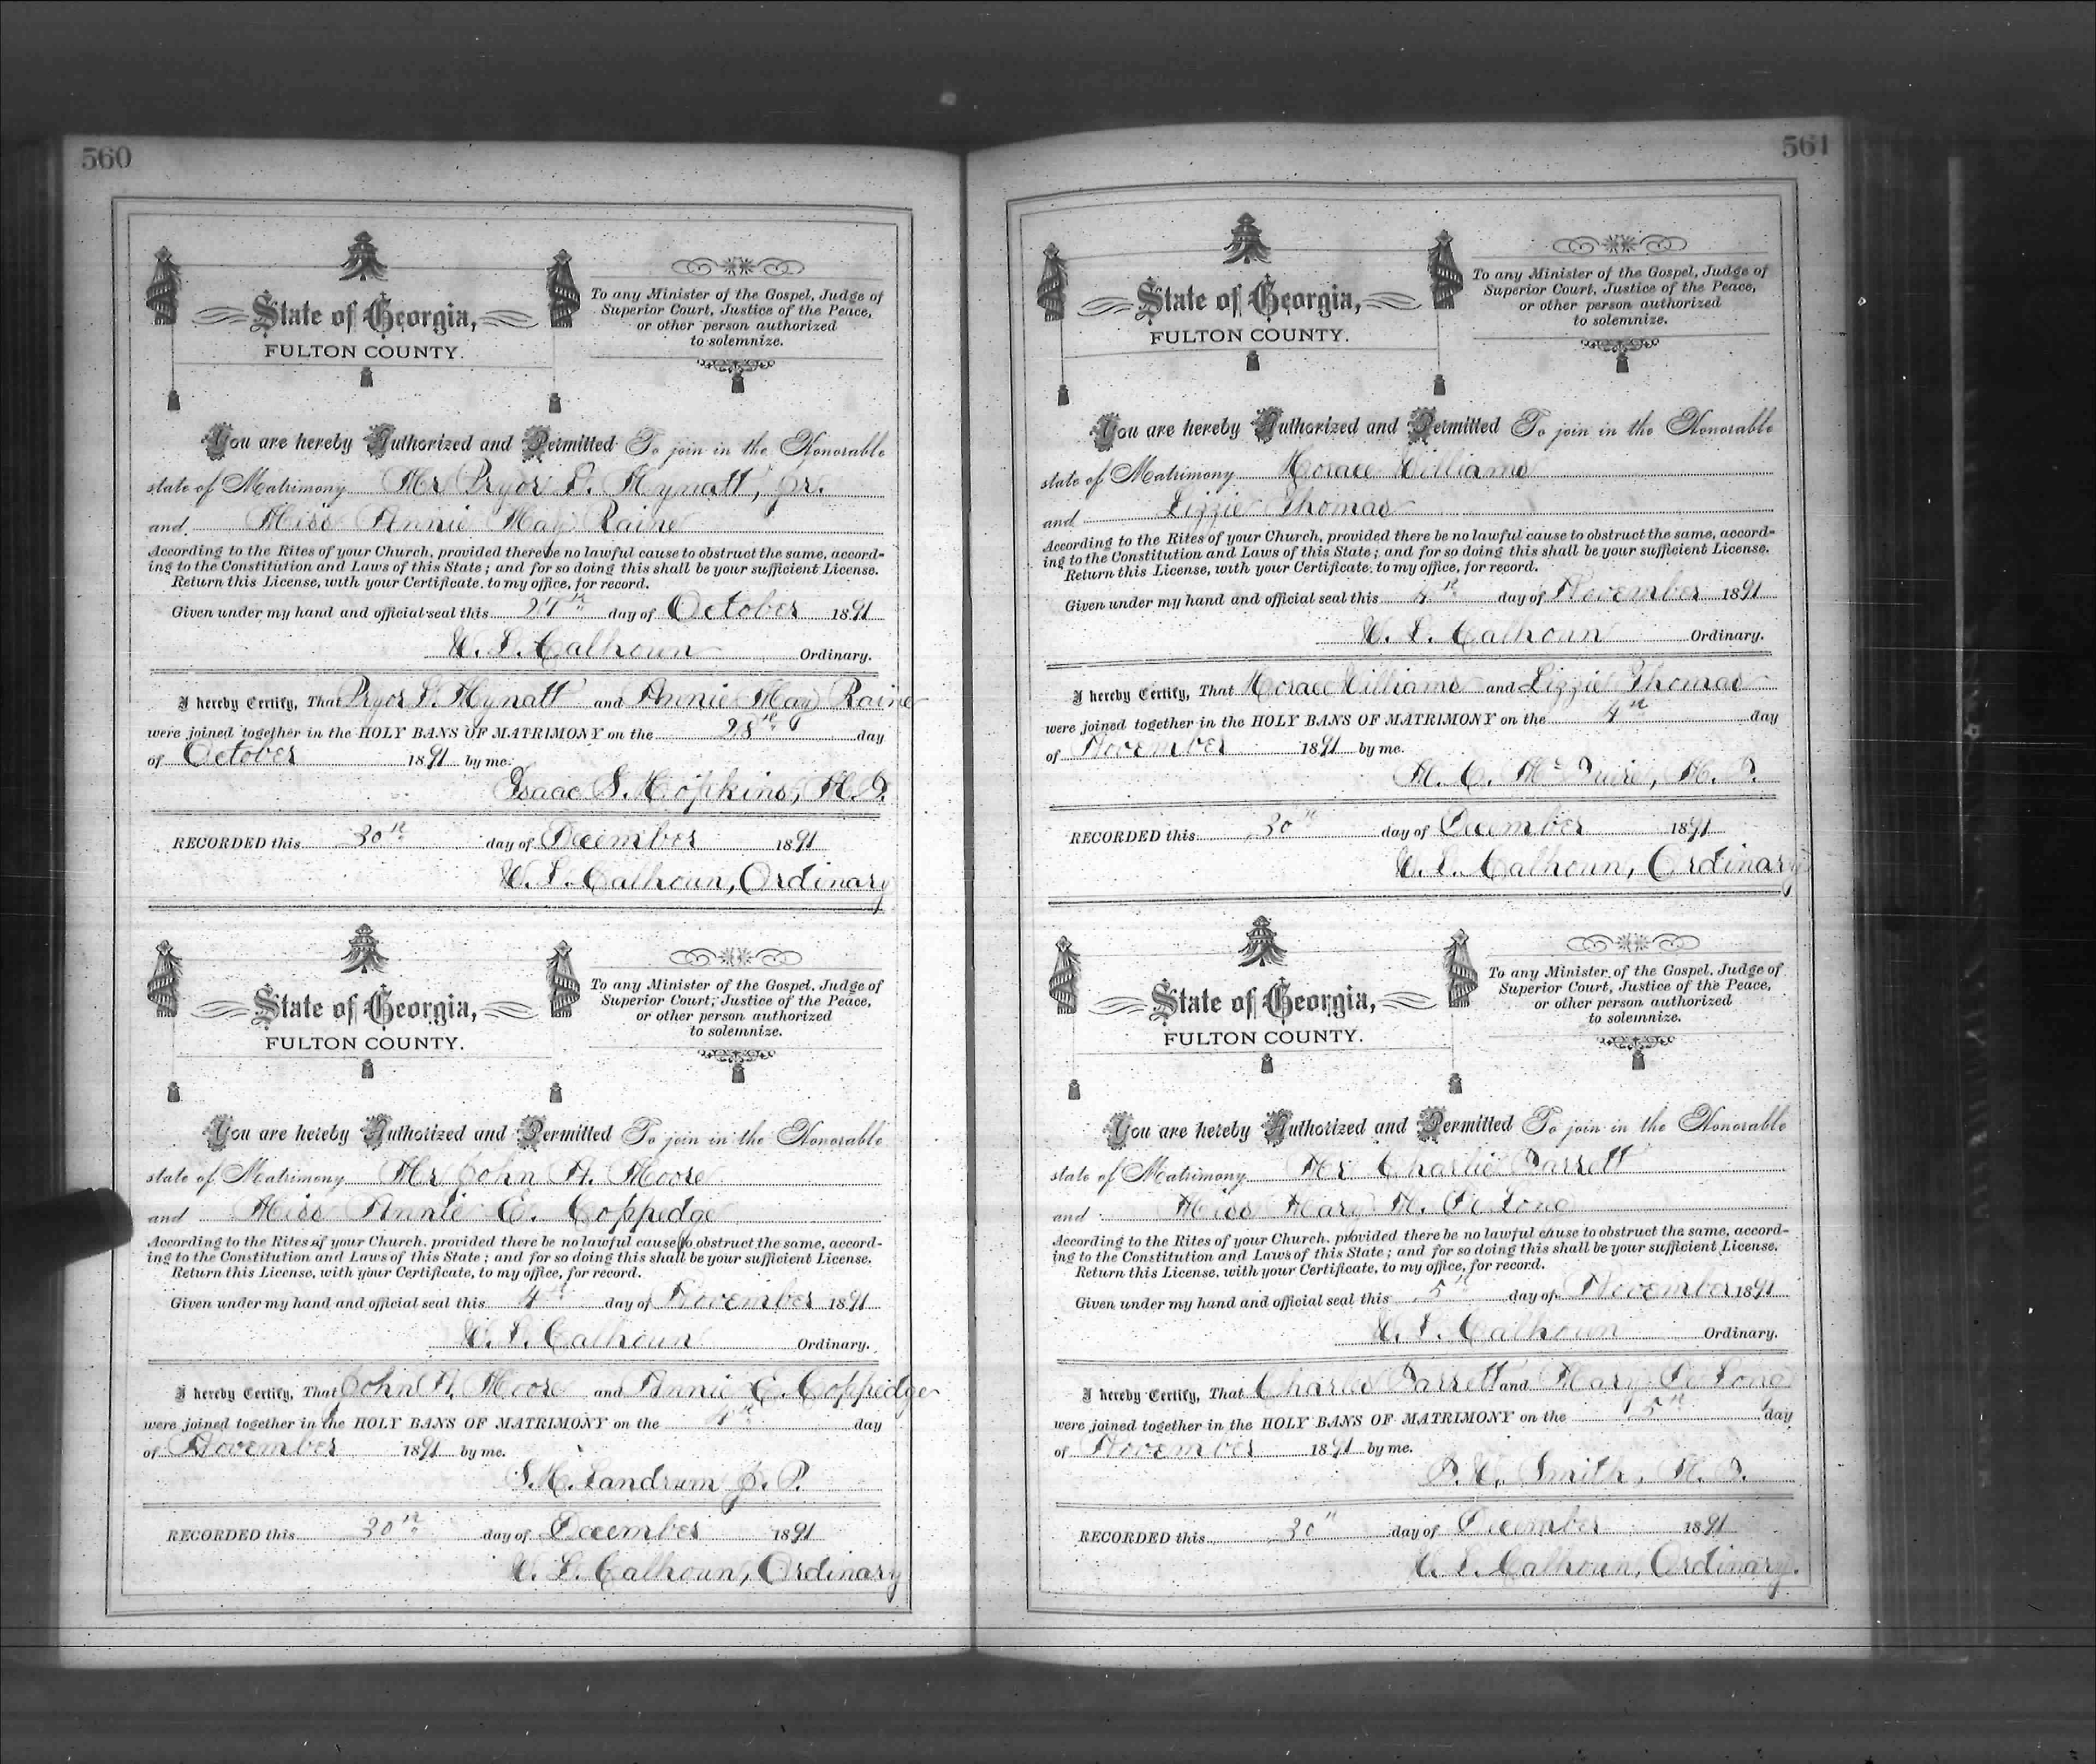 560
State of Georgia,
FULTON COUNTY.
To any Minister of the Gospel, Judge of
Superior Court, Justice of the Peace,
or other person authorized
to solemnize.
You are hereby Authorized and Permitted To join in the Honorable
state of Matrimony Mr Pryor L. Mynatt, Jr.
and Miss Annie May Raine
According to the Rites of your Church, provided there be no lawful cause to obstruct the same, accord-
ing to the Constitution and Laws of this State; and for so doing this shall be your sufficient License.
Return this License, with your Certificate, to my office, for record.
Given under my hand and official seal this 27th day of October 1891
W. L. Calhoun Ordinary.
I hereby Certify, That Pryor L. Mynatt and Annie May Raine
were joined together in the HOLY BANS OF MATRIMONY on the 28th day
of October 1891 by me.
Isaac S. Hopkins, M. G.
RECORDED this 30th day of December 1891
W. L. Calhoun, Ordinary
State of Georgia,
FULTON COUNTY.
To any Minister of the Gospel, Judge of
Superior Court, Justice of the Peace,
or other person authorized
to solemnize.
You are hereby Authorized and Permitted To join in the Honorable
state of Matrimony Mr John A. Moore
and Miss Annie E. Coppedge
According to the Rites of your Church, provided there be no lawful cause to obstruct the same, accord-
ing to the Constitution and Laws of this State; and for so doing this shall be your sufficient License.
Return this License, with your Certificate, to my office, for record.
Given under my hand and official seal this 4th day of November 1891
W. L. Calhoun Ordinary.
I hereby Certify, That John A. Moore and Annie E. Coppedge
were joined together in the HOLY BANS OF MATRIMONY on the 4th day
of November 1891 by me.
S. H. Landrum J. P.
RECORDED this 30th day of December 1891
W. L. Calhoun, Ordinary
561
State of Georgia,
FULTON COUNTY.
To any Minister of the Gospel, Judge of
Superior Court, Justice of the Peace,
or other person authorized
to solemnize.
You are hereby Authorized and Permitted To join in the Honorable
state of Matrimony Horace Williams
and Lizzie Thomas
According to the Rites of your Church, provided there be no lawful cause to obstruct the same, accord-
ing to the Constitution and Laws of this State; and for so doing this shall be your sufficient License.
Return this License, with your Certificate, to my office, for record.
Given under my hand and official seal this 4th day of November 1891
W. L. Calhoun Ordinary.
I hereby Certify, That Horace Williams and Lizzie Thomas
were joined together in the HOLY BANS OF MATRIMONY on the 4th day
of November 1891 by me.
C. McGuire, M. G.
RECORDED this 30th day of December 1891
W. L. Calhoun, Ordinary
State of Georgia,
FULTON COUNTY.
To any Minister of the Gospel, Judge of
Superior Court, Justice of the Peace,
or other person authorized
to solemnize.
You are hereby Authorized and Permitted To join in the Honorable
state of Matrimony Mr Charlie Garrett
and Miss Mary M. DeLong
According to the Rites of your Church, provided there be no lawful cause to obstruct the same, accord-
ing to the Constitution and Laws of this State; and for so doing this shall be your sufficient License.
Return this License, with your Certificate, to my office, for record.
Given under my hand and official seal this 5th day of November 1891
W. L. Calhoun Ordinary.
I hereby Certify, That Charles Garrett and Mary DeLong
were joined together in the HOLY BANS OF MATRIMONY on the 5th day
of November 1891 by me.
Smith, M. G.
RECORDED this 30th day of December 1891
W. L. Calhoun, Ordinary.